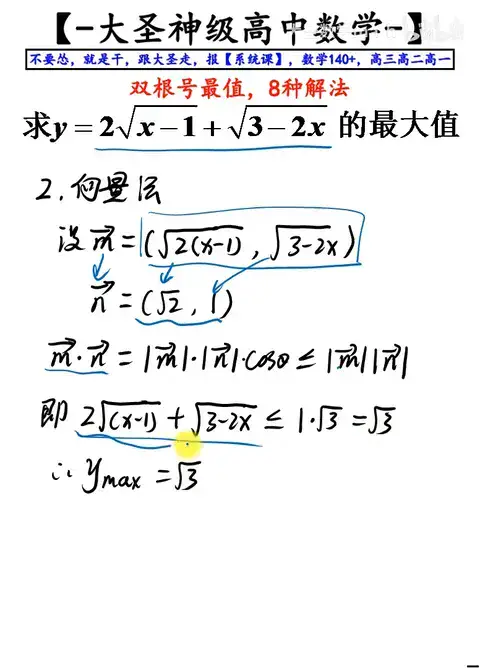 【-大圣神级高中数学-】
不要怂，就是干，跟大圣走，报【系统课】，数学140+，高三高二高一
双根号最值，8种解法
求y=2√(x-1)+√(3-2x) 的最大值
2.向量法
设 m⃗=(√(2(x-1)), √(3-2x))
n⃗=(√2, 1)
m⃗·n⃗=|m⃗|·|n⃗|·cosθ≤|m⃗||n⃗|
即 2√(x-1)+√(3-2x)≤1·√3=√3
∴ymax=√3